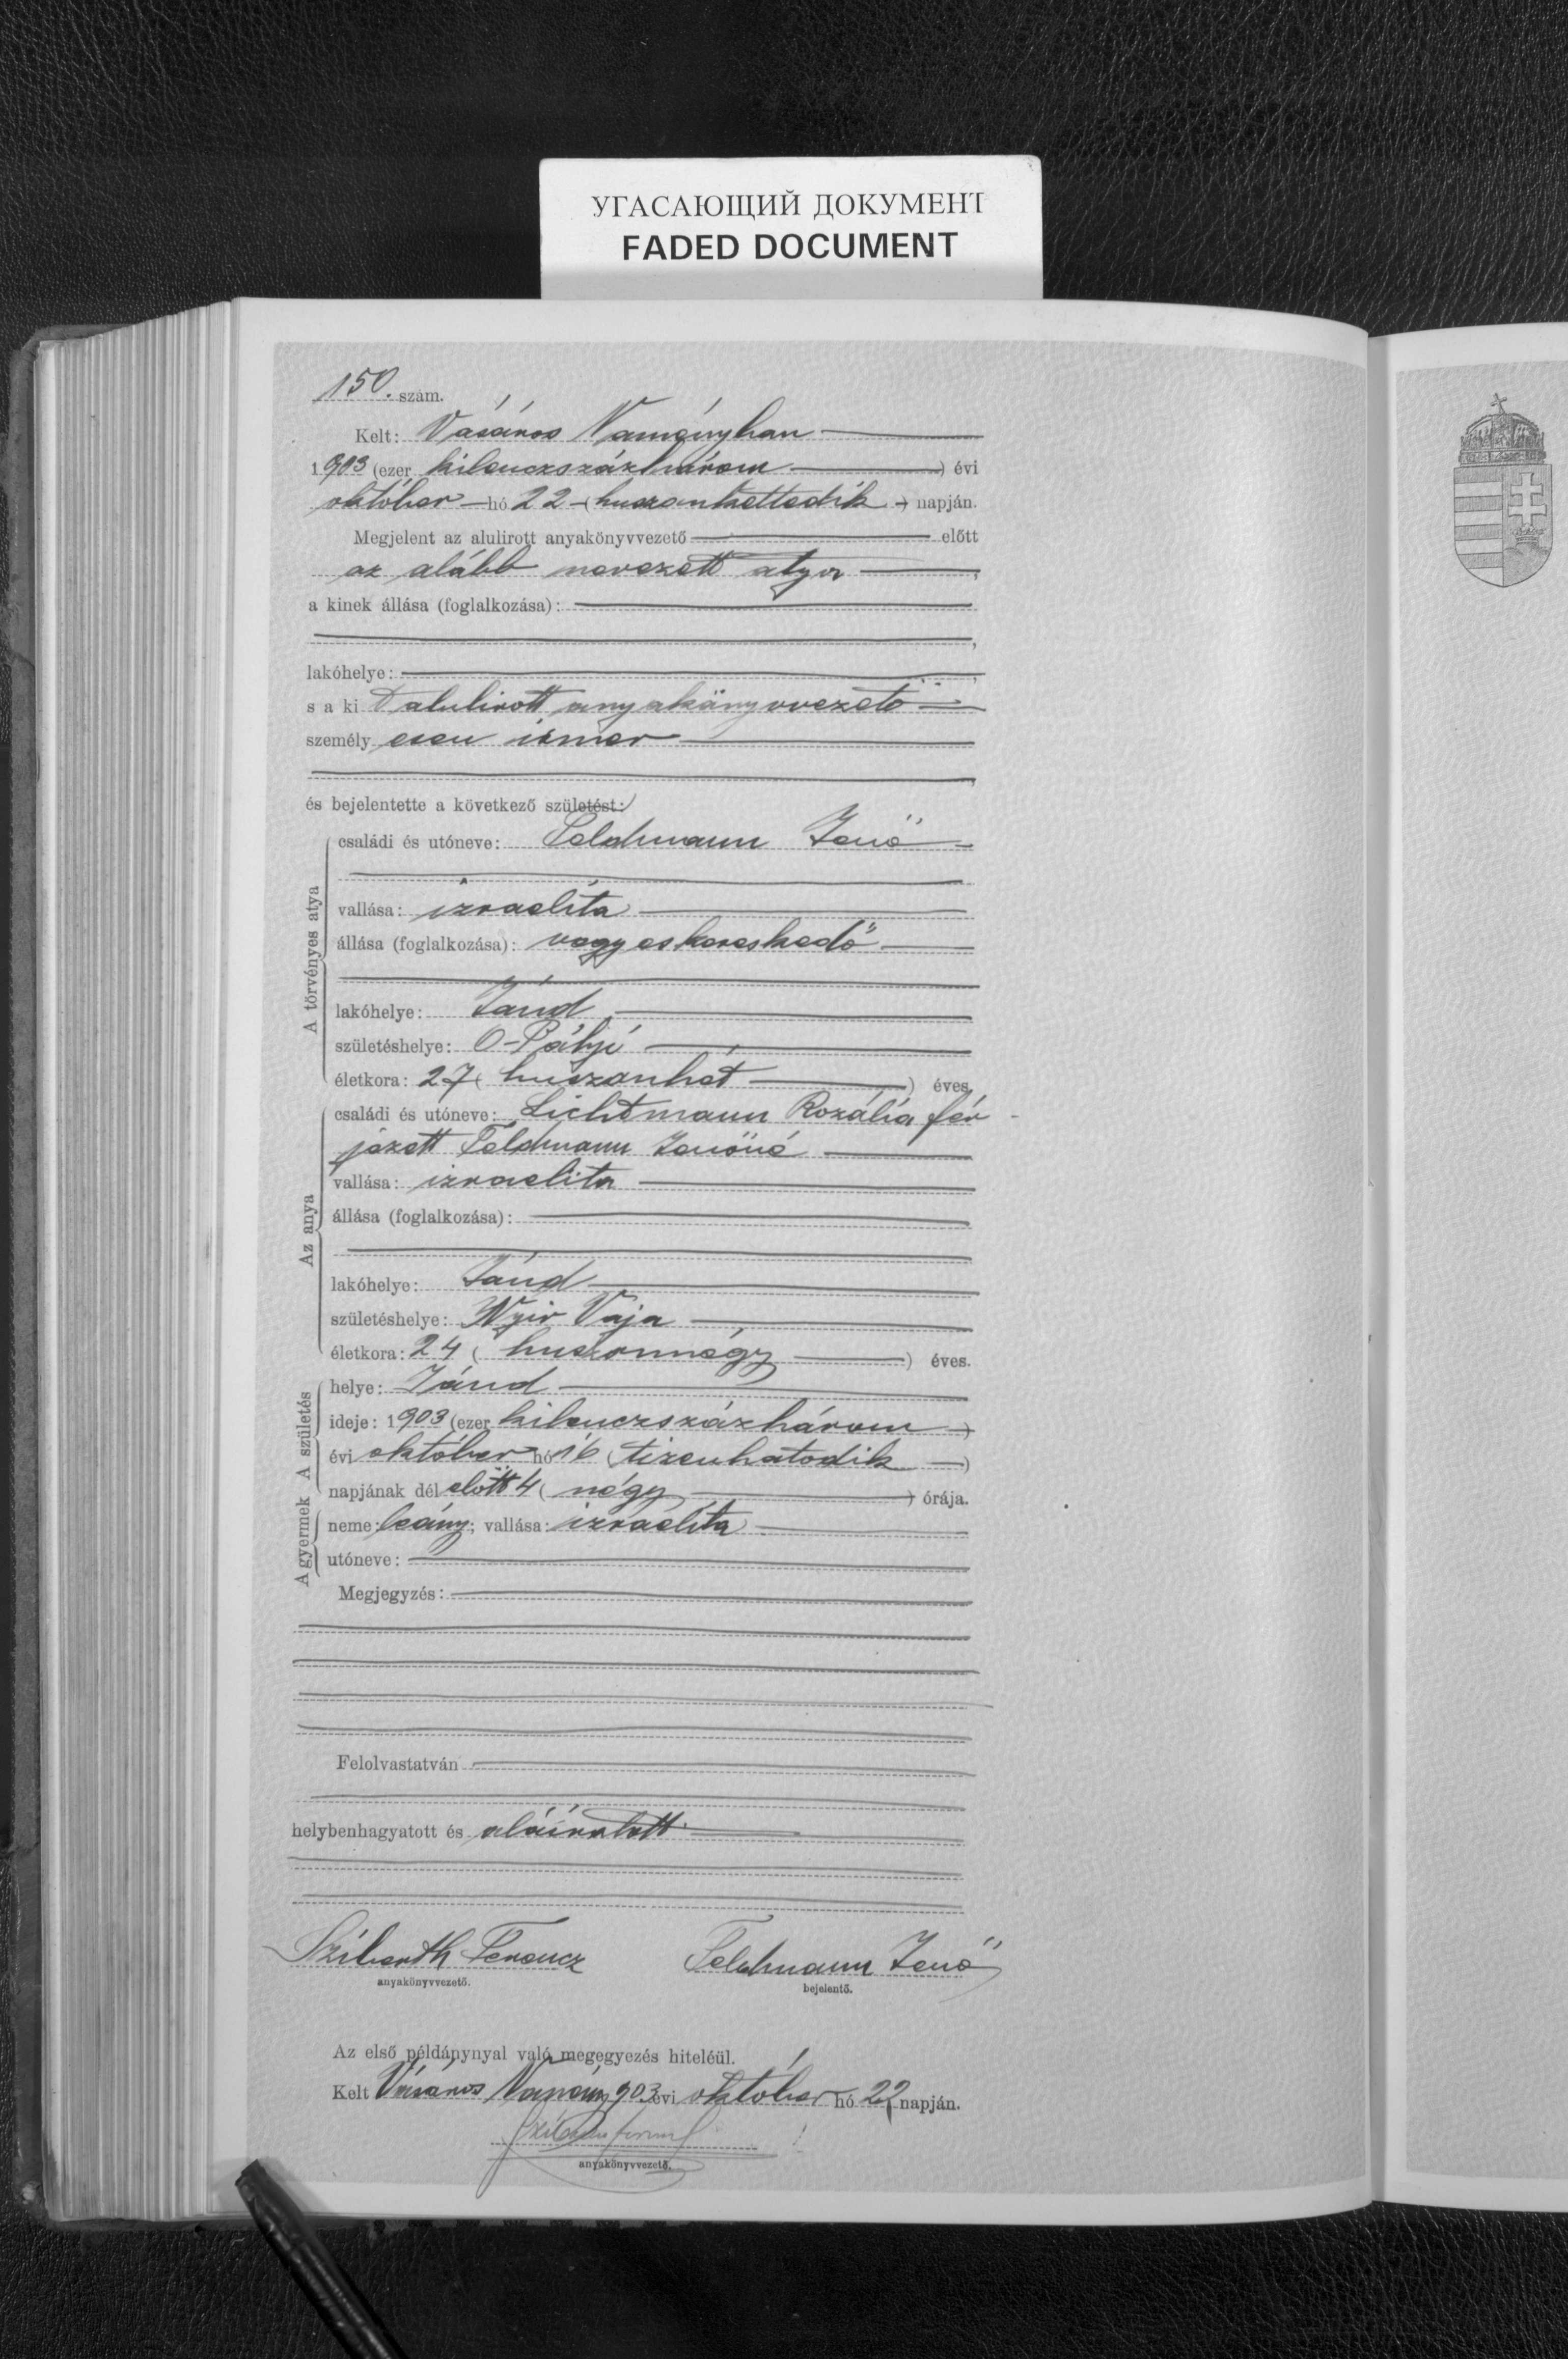 УГАСАЮЩИЙ ДОКУМЕНТ
FADED DOCUMENT
150. szám.
Kelt: Vásáros Naményban
1903 (ezer kilenczszázhárom) évi
október hó 22 (huszonkettedik) napján.
Megjelent az alulirott anyakönyvvezető előtt
az alább nevezett atya,
a kinek állása (foglalkozása):
lakóhelye:
s a ki t alulirott anyakönyvvezető
személyesen ismer
és bejelentette a következő születést:
A törvényes atya
családi és utóneve: Feldmann Jenő
vallása: izraelita
állása (foglalkozása): vegyeskereskedő
lakóhelye: Jánd
születéshelye: Ó-Pályi
életkora: 27 (huszonhét) éves.
Az anya
családi és utóneve: Lichtmann Rozália fér
jezett Feldmann Jenőné
vallása: izraelita
állása (foglalkozása):
lakóhelye: Jánd
születéshelye: Nyir Vaja
életkora: 24 (huszonnégy) éves.
A születés
helye: Jánd
ideje: 1903 (ezer kilenczszázhárom)
évi október hó 16 (tizenhatodik)
napjának dél előtt 4 (négy) órája.
A gyermek
neme: leány; vallása: izraelita
utóneve:
Megjegyzés:
Felolvastatván
helybenhagyatott és aláiratott
Ferencz Feldmann Jenő
anyakönyvvezető. bejelentő.
Az első példánynyal való megegyezés hiteléül.
Kelt Vásáros Namény 903 évi október hó 22 napján.
anyakönyvvezető.